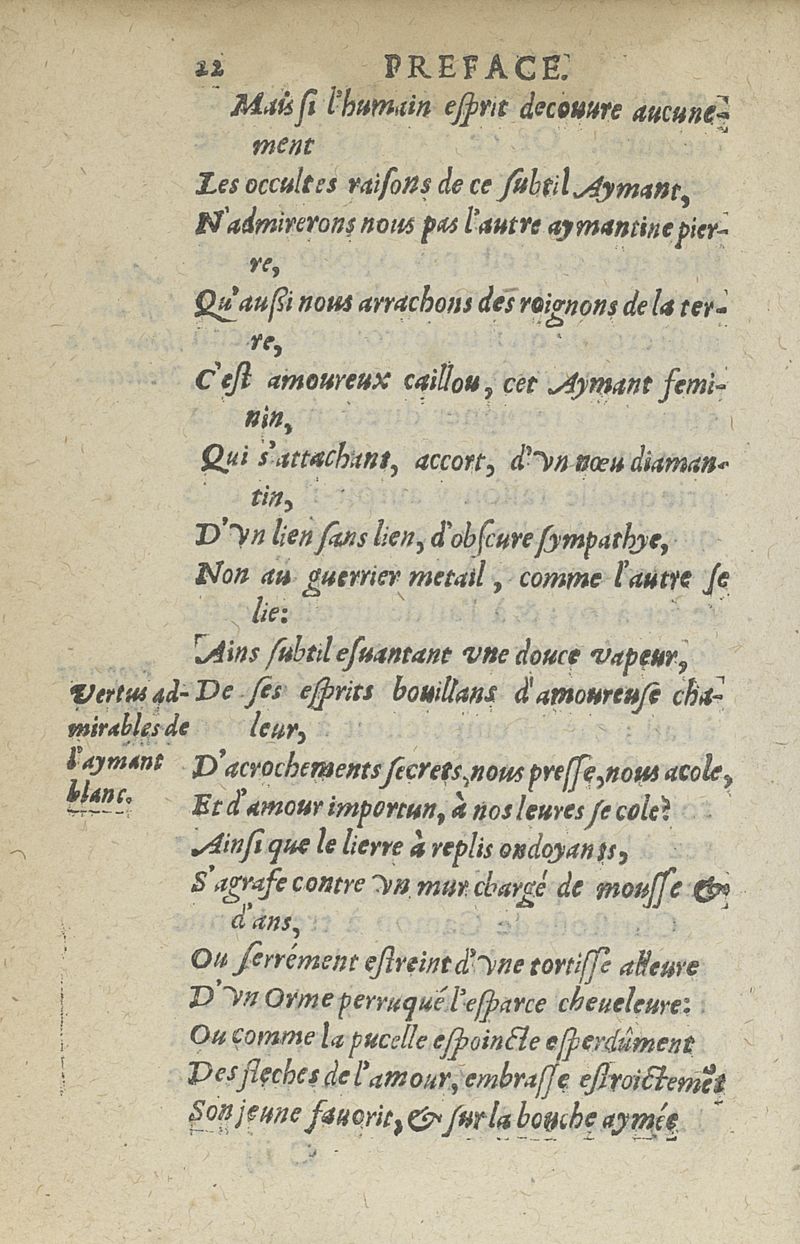 22 PREFACE.
Mais si l'humain esprit decouure aucune-
ment
Les occultes raisons de ce subtil Aymant,
N'admirerons nous pas l'autre aymantine pier-
re,
Qu'aussi nous arrachons des roignons de la ter-
re,
C'est amoureux caillou, cet Aymant femi-
nin,
Qui s'attachant, accort, d'vn nœu diaman-
tin,
D'vn lien sans lien, d'obscure sympathye,
Non au guerrier metail, comme l'autre se
lie:
Ains subtil esuantant vne douce vapeur,
De ses esprits bouillans d'amoureuse cha-
leur,
D'acrochements secrets, nous presse, nous acole,
Et d'amour importun, à nos leures se cole?
Ainsi que le lierre à replis ondoyants,
S'agrafe contre vn mur chargé de mousse &
d'ans,
Ou serrément estreint d'vne tortisse alleure
D'vn Orme perruqué l'esparce cheueleure:
Ou comme la pucelle espoincte esperdûment
Des fleches de l'amour, embrasse estroictemẽt
Son jeune fauorit, & sur la bouche aymée
Vertus ad-
mirables de
l'aymant
blanc.